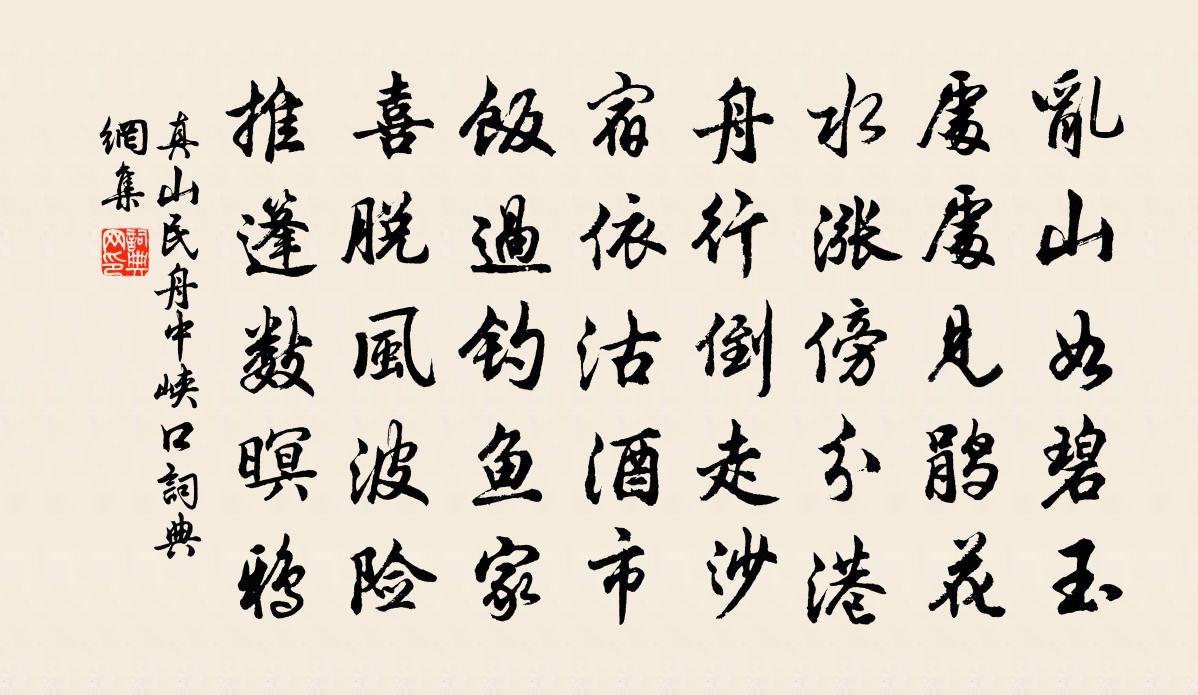 亂山如碧玉
處處見鵑花
水漲傍分港
舟行倒走沙
宿依沽酒市
飯過釣魚家
喜脱風波險
推蓬數暝鴉
真山民舟中峽口詞典
網集
詞典
网印